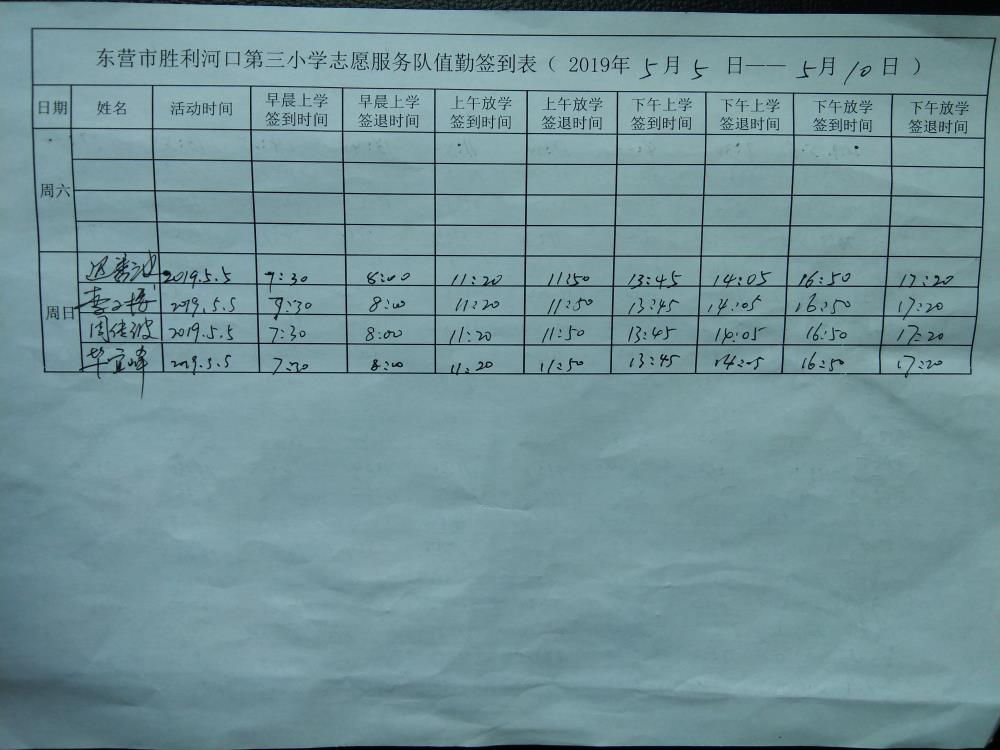 东营市胜利河口第三小学志愿服务队值勤签到表（ 2019年 5月5 日—— 5月10日 ）
日期 姓名 活动时间 早晨上学签到时间 早晨上学签退时间 上午放学签到时间 上午放学签退时间 下午上学签到时间 下午上学签退时间 下午放学签到时间 下午放学签退时间
周六
周日
2019.5.5 7:30 8:00 11:20 11:50 13:45 14:05 16:50 17:20
2019.5.5 7:30 8:00 11:20 11:50 13:45 14:05 16:50 17:20
周传波 2019.5.5 7:30 8:00 11:20 11:50 13:45 14:05 16:50 17:20
华宜峰 2019.5.5 7:30 8:00 11:20 11:50 13:45 14:05 16:50 17:20